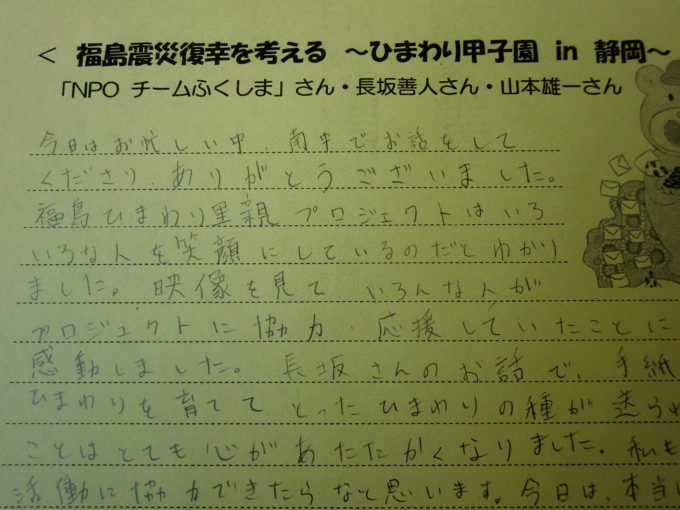 < 福島震災復幸を考える ～ひまわり甲子園 in 静岡～
「NPO チームふくしま」さん・長坂善人さん・山本雄一さん
今日はお忙しい中、南中でお話をして
くださり、ありがとうございました。
福島ひまわり里親プロジェクトはいろ
いろな人を笑顔にしているのだとわかり
ました。映像を見て、いろんな人が
プロジェクトに協力・応援していたことに
感動しました。長坂さんのお話で、手紙
ひまわりを育てて とったひまわりの種が送られ
ことはとても心があたたかくなりました。私も
活動に協力できたらなと思います。今日は、本当に